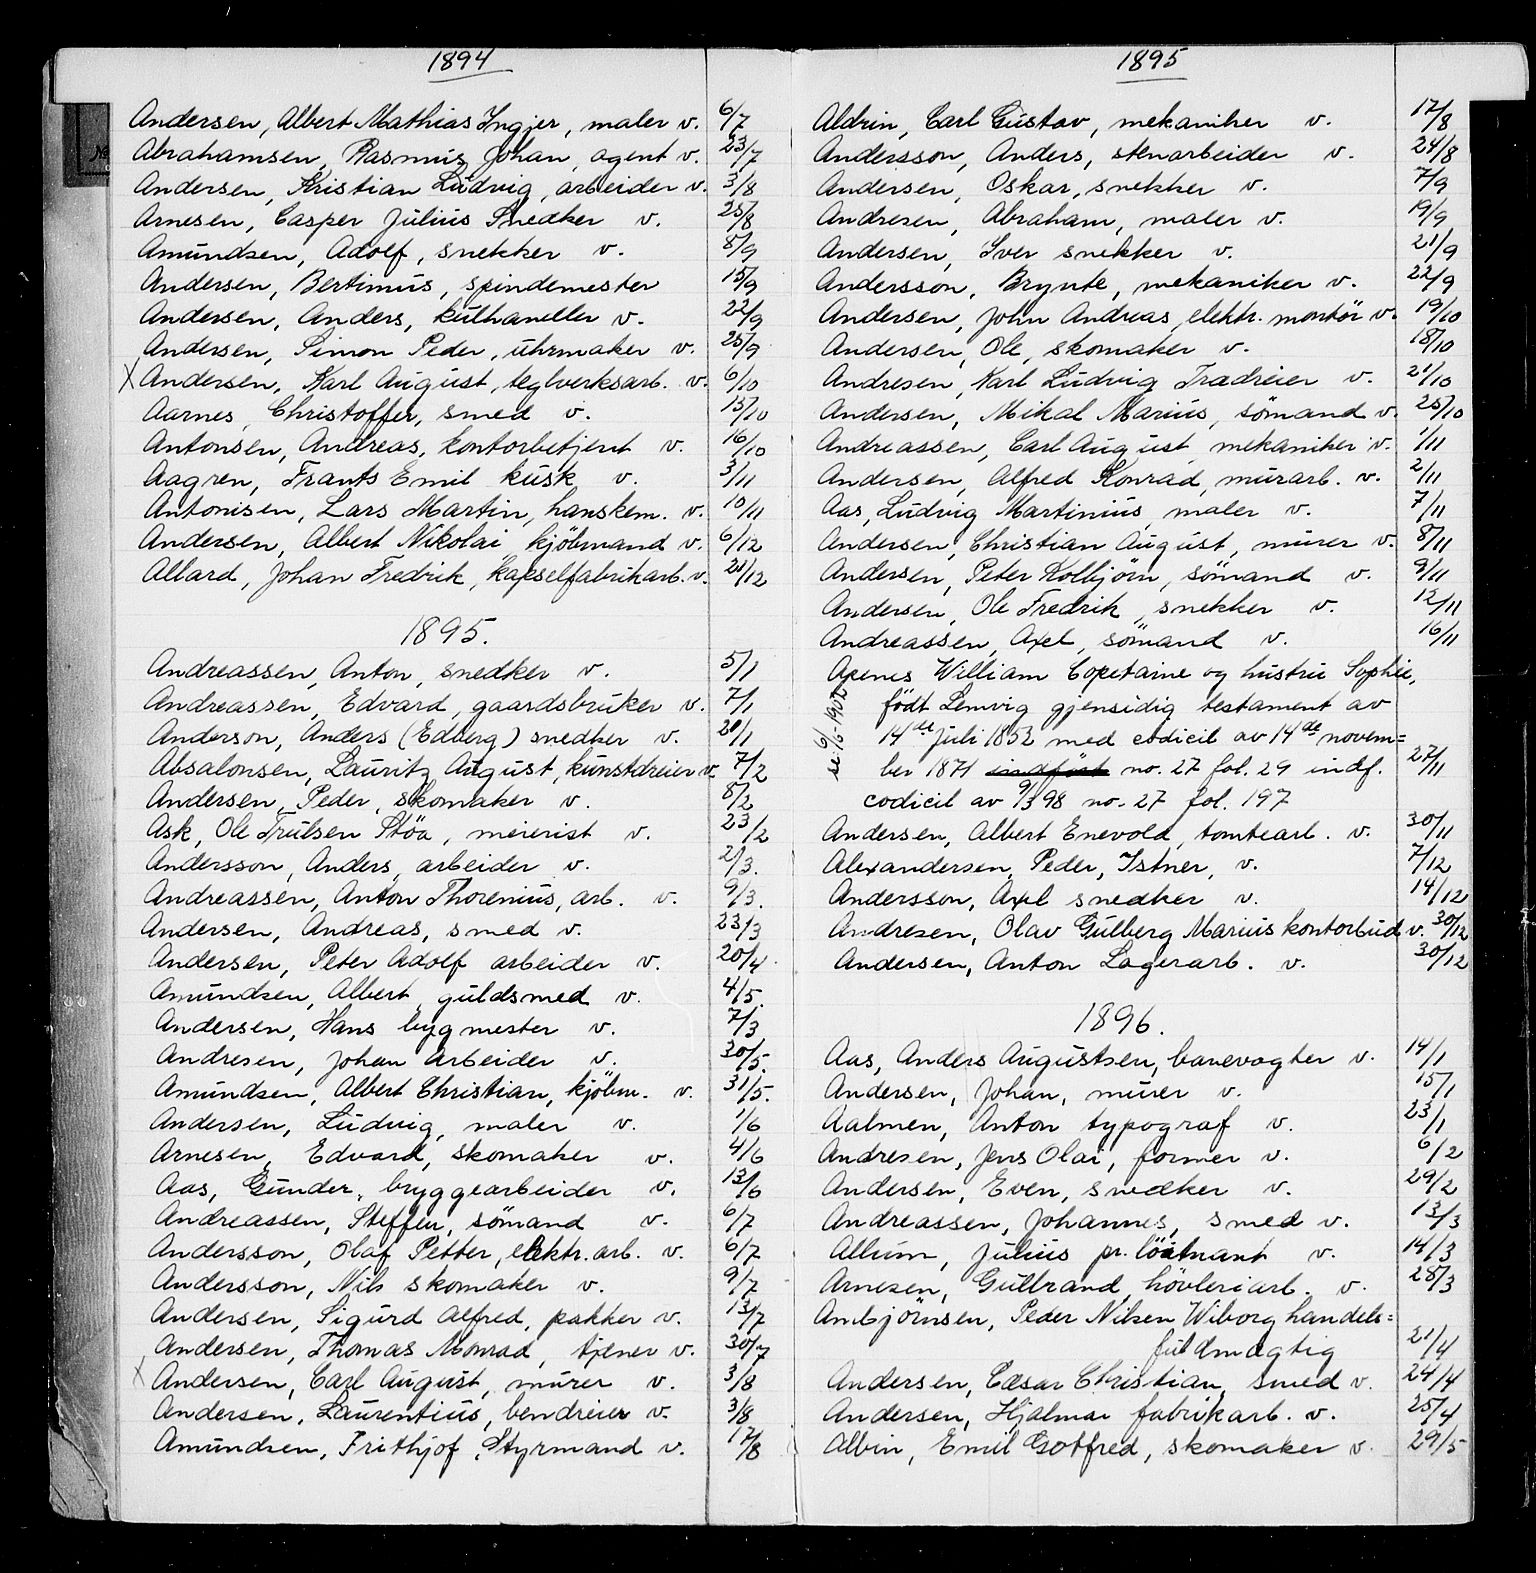 1894
Andersen, Albert Mathias Ingjer, maler v. 6/7
Abrahamsen, Rasmus Johan, agent v. 23/7
Andersen, Kristian Ludvig, arbeider v. 3/8
Arnesen, Casper Julius Snedker v. 25/8
Amundsen, Adolf, snekker v. 8/9
Andersen, Bertinius, spindemester 15/9
Andersen, Anders, kulhandler v. 22/9
Andersen, Simon Peder, uhrmaker v. 25/9
X Andersen, Karl August, teglverksarb. v. 6/10
Aarnes, Christoffer, smed v. 15/10
Antonsen, Andreas, kontorbetjent v. 16/10
Aagren, Frants Emil kusk v. 3/11
Antonisen, Lars Martin, hanskem. v. 10/11
Andersen, Albert Nikolai kjöbmand v. 6/12
Allard, Johan Fredrik, kapselfabrikarb. v. 21/12
1895.
Andreassen, Anton, snedker v. 5/1
Andreassen, Edvard, gaardsbruker v. 7/1
Anderson, Anders (Edberg) snedker v. 21/1
Absalonsen, Lauritz August, kunstdreier v. 7/2
Andersen, Peder, skomaker v. 8/2
Ask, Ole Trulsen Stöa, meierist v. 23/2
Andersson, Anders, arbeider v. 2/3.
Andreassen, Anton Thorenius, arb. v. 9/3.
Andersen, Andreas, smed v. 23/3
Andersen, Peter Adolf arbeider v. 20/4.
Amundsen, Albert, guldsmed v. 4/5.
Andersen, Hans bygmester v. 7/3
Andresen, Johan arbeider v. 30/5.
Amundsen, Albert Christian, kjöbm. v. 31/5.
Andersen, Ludvig, maler v. 1/6
Arnesen, Edvard, skomaker v. 4/6
Aas, Gunder, bryggearbeider v. 13/6
Andreassen, Steffen, sömand v. 6/7
Andersson, Olaf Petter, elektr. arb. v. 6/7
Andersson, Nils skomaker v. 9/7
Andersen, Sigurd Alfred, pakker v. 13/7
Andersen, Thomas Monrad, tjener v. 30/7
X Andersen, Carl August, murer v. 3/8
Andersen, Laurentius, bendreier v. 3/8
Amundsen, Frithjof, Styrmand v. 12/8
1895
Aldrin, Carl Gustav, mekaniker v. 17/8
Andersson, Anders, stenarbeider v. 24/8
Andersen, Oskar, snekker v. 7/9
Andresen, Abraham, maler v. 19/9
Andersen, Iver snekker v. 21/9
Andersson, Brynte, mekaniker v. 22/9
Andersen, John Andreas, elektr. montör v. 19/10
Andersen, Ole, skomaker v. 18/10
Andresen, Karl Ludvig Trædreier v. 21/10
Andersen, Mikal Marius, sömand v. 25/10
Andreassen, Carl August, mekaniker v. 1/11
Andersen, Alfred Konrad, murarb. v. 2/11
Aas, Ludvig Martinius, maler v. 7/11
Andersen, Christian August, murer v. 8/11
Andersen, Peter Kolbjörn, sömand v. 9/11
Andersen, Ole Fredrik, snekker v. 12/11
Andreassen, Axel, sömand v. 16/11
Apenes William Copetaine og hustru Sophie,
födt Lemvig gjensidig testament av
14de Juli 1852 med codicil av 14de novem=
ber 1871 indfört no. 27 fol. 29 indf. 27/11
codicil av 9/3 98 no. 27 fol. 197
Andersen, Albert Enevold, tomtearb. v. 30/11
Alexandersen, Peder, Istner, v. 7/12
Andersson, Axel snedker v. 14/12
Andresen, Olav Gulberg Marius kontorbud v. 30/12
Andersen, Anton Lagerarb. v. 30/12
1896.
Aas, Anders Augustsen, banevogter v. 14/1
Andersen, Johan, murer v. 15/1
Aalmen, Anton typograf v. 23/1
Andresen, Jens Olai, former v. 6/2
Andersen, Even, snedker v. 29/2
Andreassen, Johannes, smed v. 13/3
Allum, Julius pr. löitnant v. 14/3
Arnesen, Gulbrand, hövleriarb. v. 28/3
Ambjörnsen, Peder Nilsen Wiborg handels=
fuldmægtig 21/4
Andersen, Cæsar Christian, smed v. 24/4
Andersen, Hjalmar fabrikarb. v. 25/4
Albin, Emil Gotfred, skomaker v. 29/5